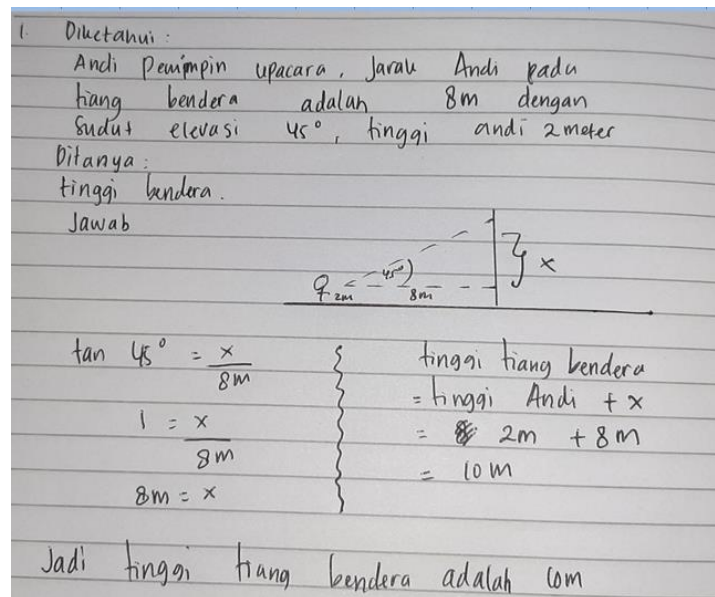 1. Diketahui :
Andi Pemimpin upacara, Jarak Andi pada
tiang bendera adalah 8m dengan
Sudut elevasi 45°, tinggi andi 2 meter
Ditanya :
tinggi bendera.
Jawab
45°
x
2m 8m
tan 45° = x / 8m
1 = x / 8m
8m = x
tinggi tiang bendera
= tinggi Andi + x
= 2m + 8m
= 10m
Jadi tinggi tiang bendera adalah 10m